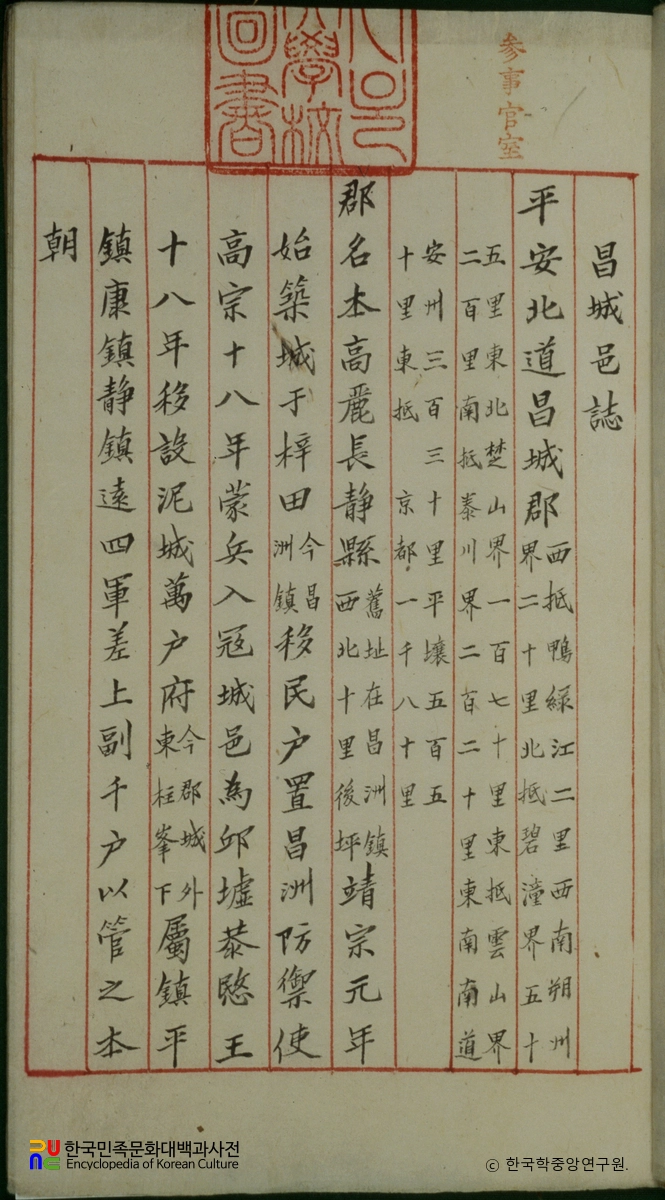 参事官室
學校
圖書
昌城邑誌
平安北道昌城郡西抵鴨綠江二里西南朔州界二十里北抵碧潼界五十
五里東北楚山界一百七十里東抵雲山界二百里南抵泰川界二百二十里東南南道
安州三百三十里平壤五百五十里東抵京都一千八十里
郡名本高麗長靜縣舊址在昌洲鎮西北十里後坪靖宗元年
始築城于梓田今昌洲鎮移民户置昌洲防禦使
高宗十八年蒙兵入冦城邑為邱墟恭愍王
十八年移設泥城萬户府今郡城外東柱峯下屬鎮平
鎮康鎮靜鎮遠四軍差上副千户以管之本
朝
한국민족문화대백과사전
Encyclopedia of Korean Culture
© 한국학중앙연구원.